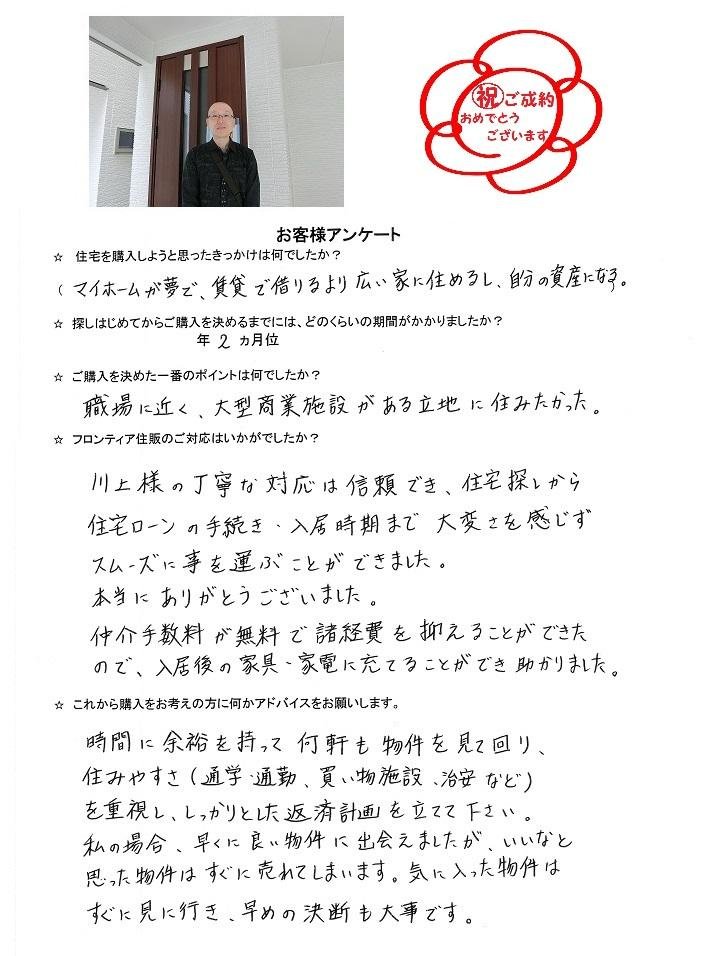 祝ご成約
おめでとう
ございます
お客様アンケート
☆ 住宅を購入しようと思ったきっかけは何でしたか？
( マイホームが夢で、賃貸で借りるより広い家に住めるし、自分の資産になる。
☆ 探しはじめてからご購入を決めるまでには、どのくらいの期間がかかりましたか？
年 2 ヵ月位
☆ ご購入を決めた一番のポイントは何でしたか？
職場に近く、大型商業施設がある立地に住みたかった。
☆ フロンティア住販のご対応はいかがでしたか？
川上様の丁寧な対応は信頼でき、住宅探しから
住宅ローンの手続き・入居時期まで大変さを感じず
スムーズに事を運ぶことができました。
本当にありがとうございました。
仲介手数料が無料で諸経費を抑えることができた
ので、入居後の家具・家電に充てることができ助かりました。
☆ これから購入をお考えの方に何かアドバイスをお願いします。
時間に余裕を持って何軒も物件を見て回り、
住みやすさ(通学・通勤、買い物施設、治安など)
を重視し、しっかりとした返済計画を立てて下さい。
私の場合、早くに良い物件に出会えましたが、いいなと
思った物件はすぐに売れてしまいます。気に入った物件は
すぐに見に行き、早めの決断も大事です。